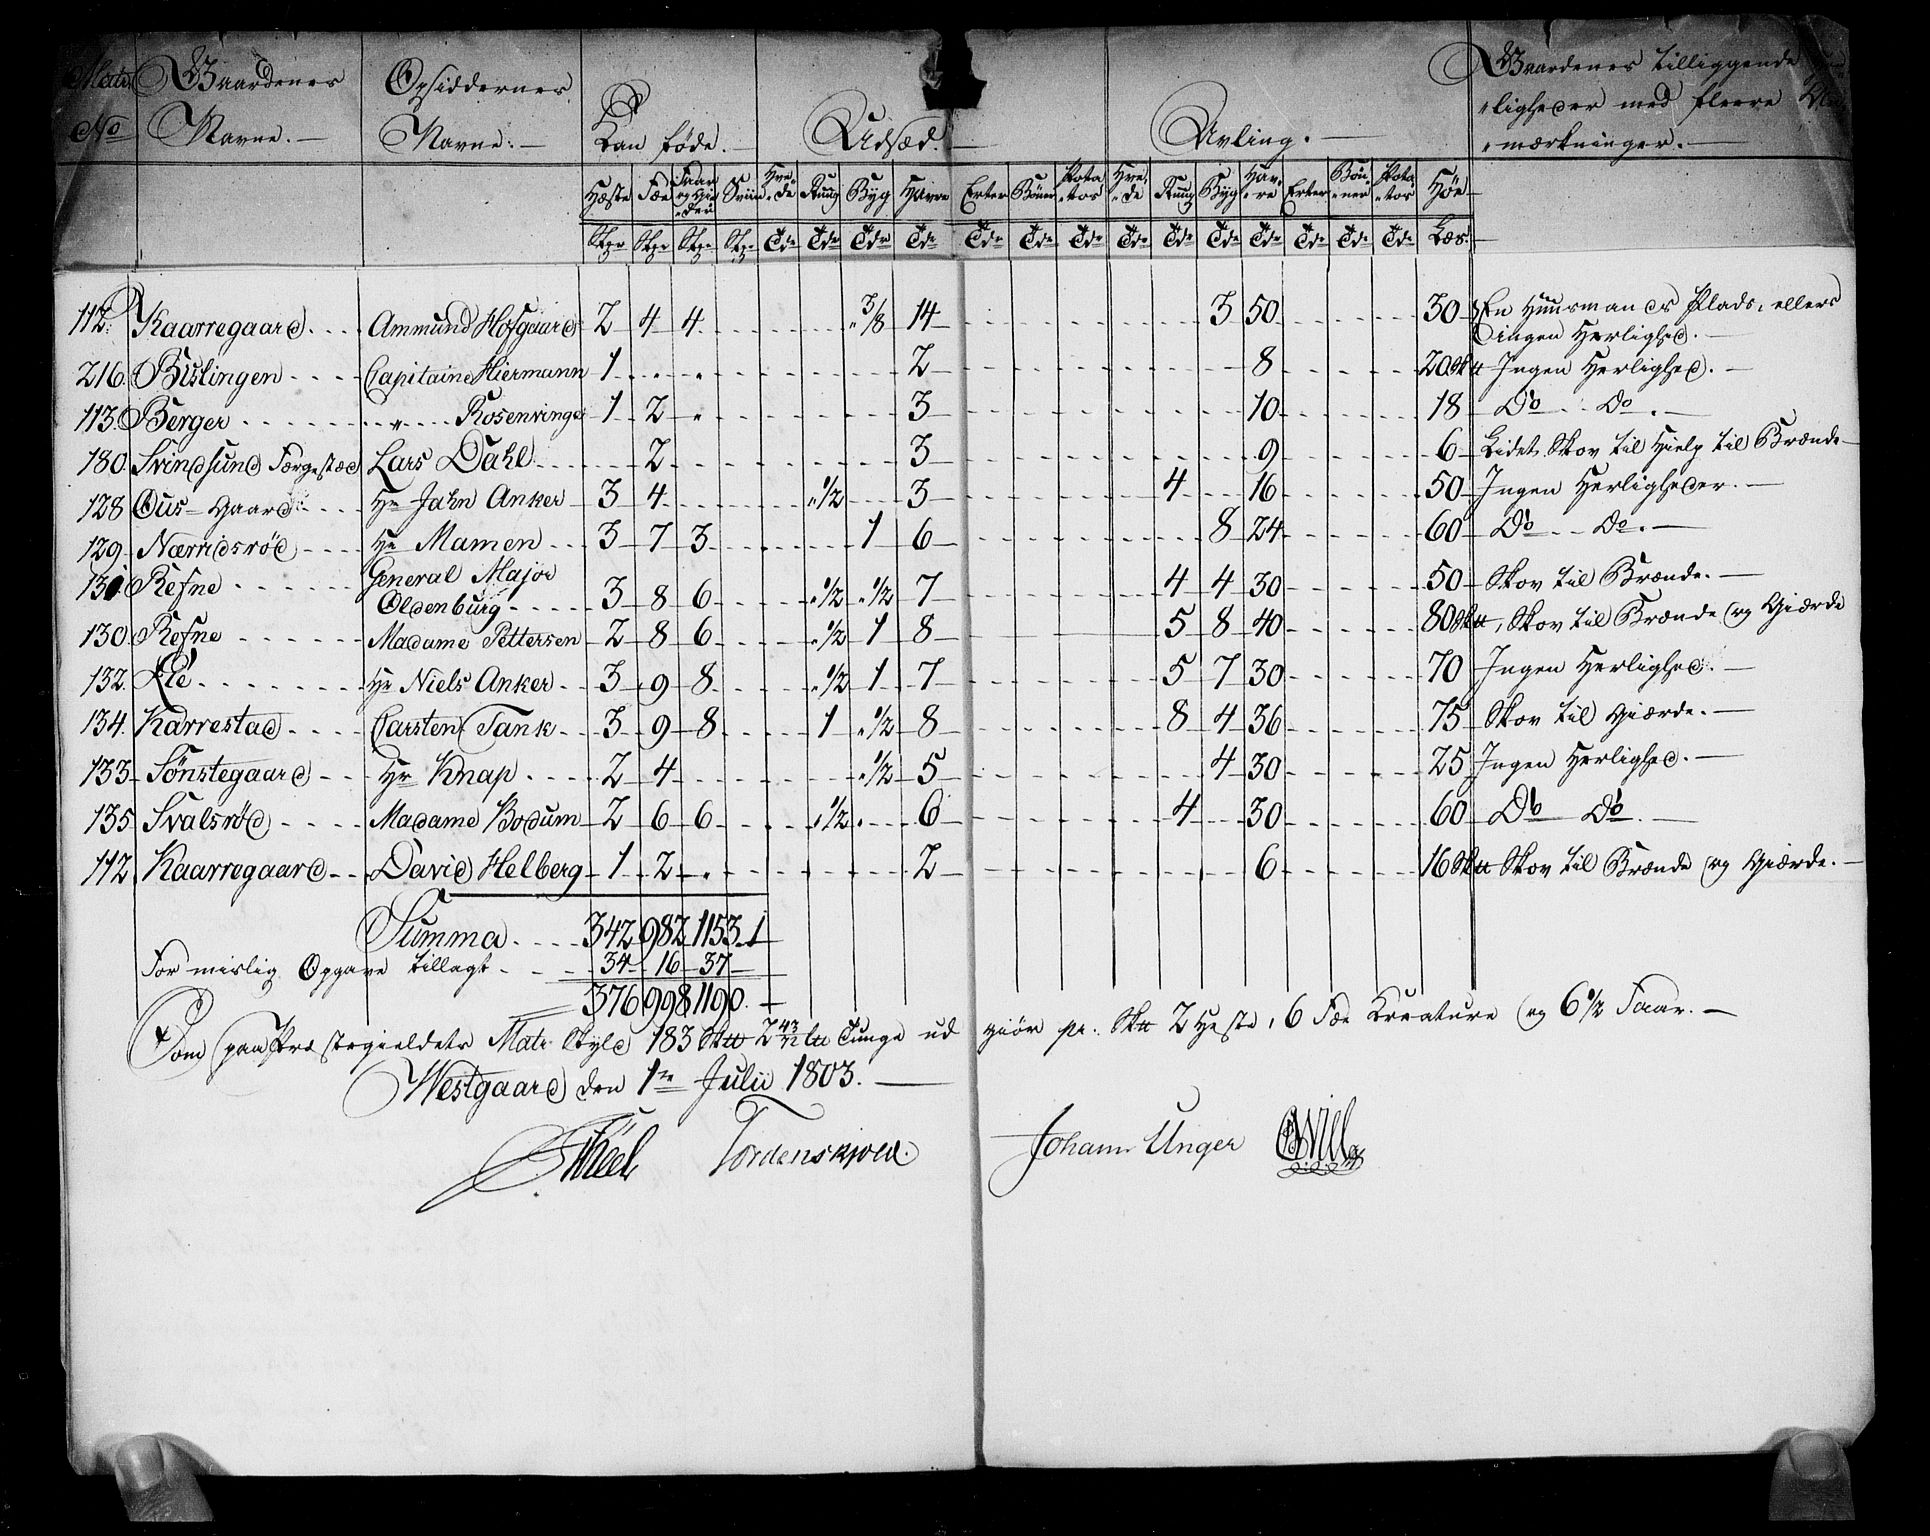 Matr No | Gaardenes Navne. — | Opsiddernes Navne. — | Kan føde. — | Udsæd. — | Avling. — | Gaardenes tilliggende
ligheder med fleere
mærkninger. —
Hæste | Fæe | Faar og Gieder | Sviin | Hvede | Ruug | Byg | Havre | Erter | Bønner | Potatos | Hvede | Ruug | Byg | Havre | Erter | Bønner | Potatos | Høe
Stkr | Stkr | Stkr | Stkr | Tdr | Tdr | Tdr | Tdr | Tdr | Tdr | Tdr | Tdr | Tdr | Tdr | Tdr | Tdr | Tdr | Tdr | Læs.
112. Kaarregaard. Ammund Hofgaard 2 4 4 3/8 14 3 50 30 En Huusmands Plads, ellers
ingen Herlighed. —
216. Bislingen Capitaine Hiermann 1 " " 2 8 20 Sktt Ingen Herlighed. —
113. Berger " Rosenvinge 1 2 " 3 10 18 Do Do. —
180. Svindsund Færgestæd Lars Dahl 2 3 9 6 Lidet Skov til Hielp til Brænde
128 Ous-Gaard Hr Jahn Anker 3 4 1/2 3 4 16 50 Ingen Herligheder. —
129. Nærridsrød Hr Mamen 3 7 3 1 6 8 24 60 Do Do. —
131 Refne General Major
Oldenburg 3 8 6 1/2 1/2 7 4 4 30 50 Skov til Brænde. —
130. Refne Madame Pettersen 2 8 6 1/2 1 8 5 8 40 80 Sktt, Skov til Brænde og Giærde
132. Lie Hr Niels Anker 3 9 8 1/2 1 7 5 7 30 70 Ingen Herlighed. —
134. Karrestad Carsten Tank 3 9 8 1 1/2 8 8 4 36 75 Skov til Giærde. —
133 Sönstegaard Hr Knap 2 4 1/2 5 4 30 25 Ingen Herlighed. —
135 Svalsrød Madame Bodum 2 6 6 1/2 6 4 30 60 Do Do. —
112 Kaarregaard David Helberg 1 2 " 2 6 16 Sktt Skov til Brænde og Giærde. —
Summa 342 982 1153 1
For mislig Opgave tillagt 34 16 37
376 998 1190. —
Som paa Præstegieldets Matr Skyld 183 Sktt 2 43/72 Ltt Tunge ud giør pr. Sktt 2 Heste, 6 Fæe Kreature og 6 1/2 Faar. —
Westgaard den 1te Julii 1803. —
Tordenskjold. Johann Unger